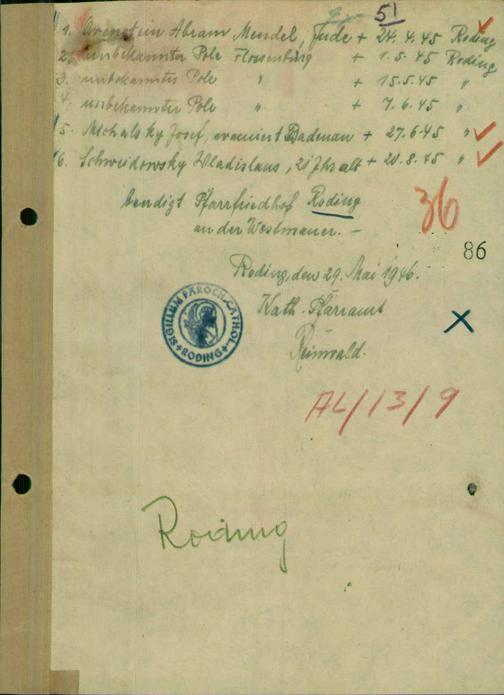 51
1. Orenstein Abram Mendel, Jude + 24.4.45 Roding
2. unbekannter Pole Flossenbürg + 1.5.45 Roding
3. unbekannter Pole " + 15.5.45 "
4. unbekannter Pole " + 7.6.45 "
5. Michalsky Josef, evamiert Badenau + 27.6.45 "
6. Schweidowsky Wladislaus, 21 Jhr alt + 20.8.45 "
beerdigt Pfarrfriedhof Roding
an der Westmauer. —
36
86
Roding, den 29. Mai 1946.
Kath. Pfarramt
Reinwald.
SIGILLUM PAROCH. CATHOL. RODING
AL/13/9
Roding